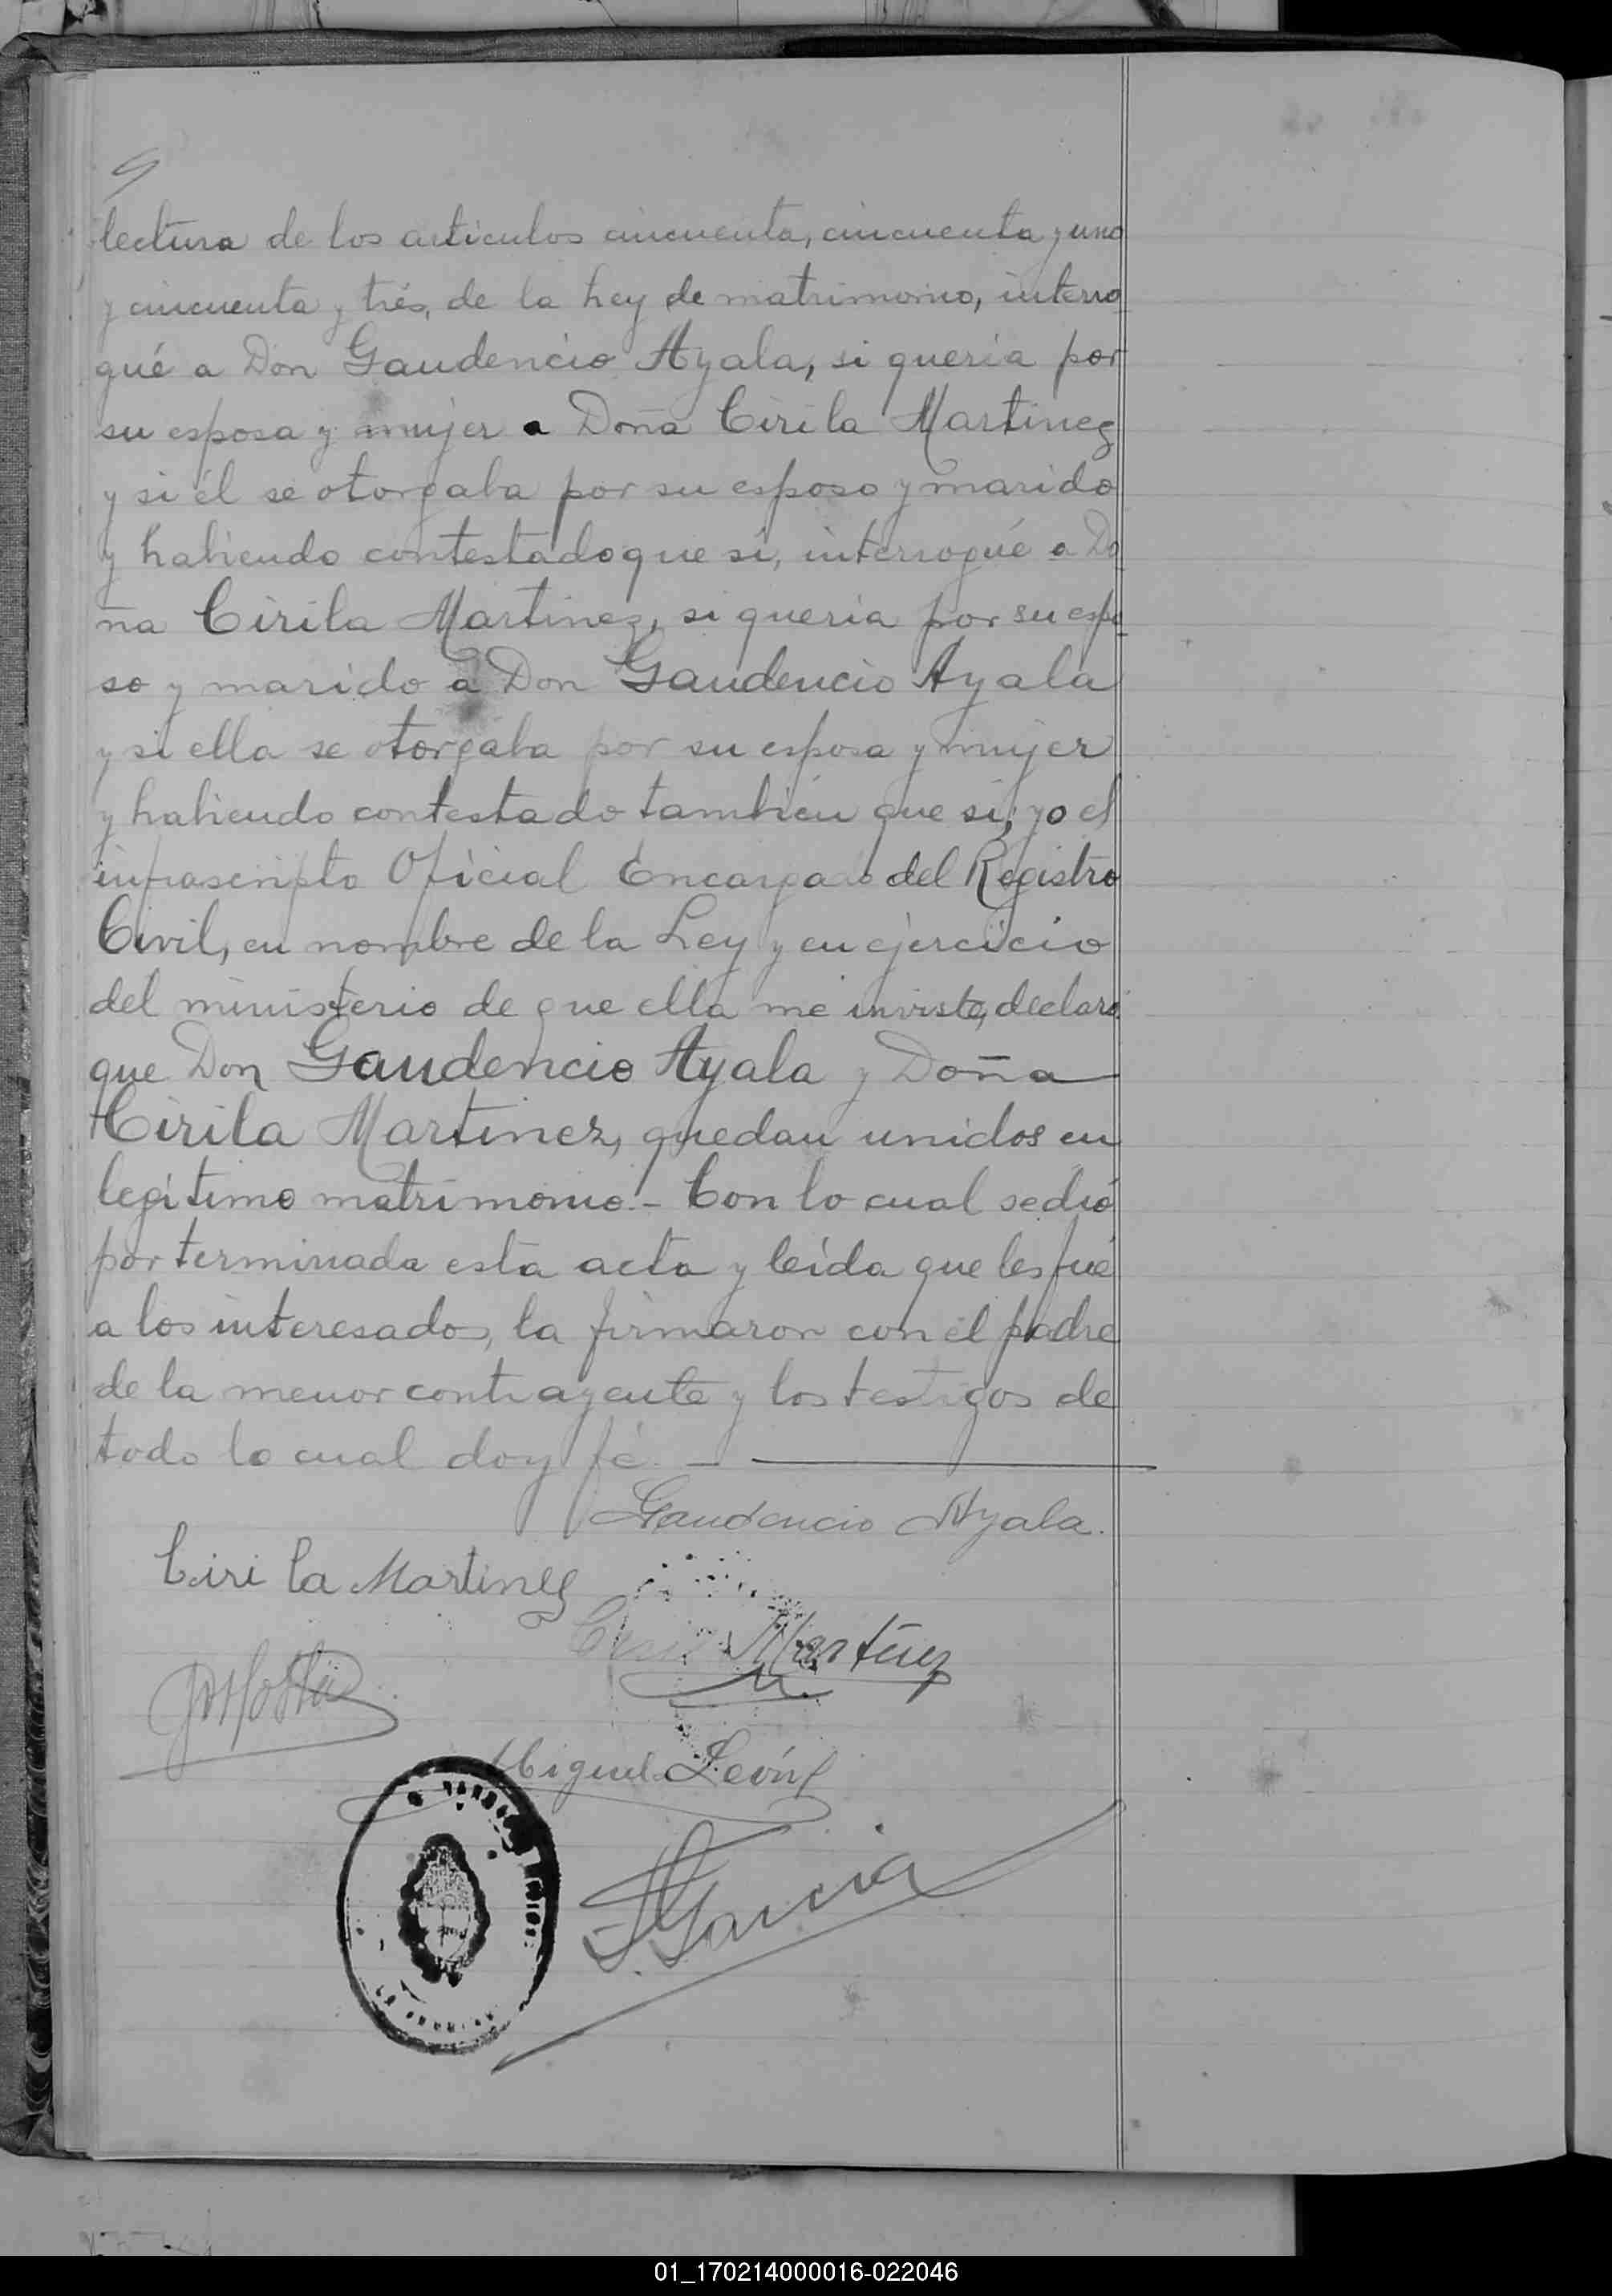 9
lectura de los artículos cincuenta, cincuenta y uno
y cincuenta y trés, de la Ley de matrimonio, interro
gué a Don Gaudencio Ayala, si quería por
su esposa y mujer a Doña Cirila Martinez
y si él se otorgaba por su esposo y marido
y habiendo contestado que si, interrogué a Do
ña Cirila Martinez, si quería por su espo
so y marido a Don Gaudencio Ayala
y si ella se otorgaba por su esposa y mujer
y habiendo contestado también que si, yo el
infrascripto Oficial Encargado del Registro
Civil, en nombre de la Ley y en ejercicio
del ministerio de que ella me inviste, declaro
que Don Gaudencio Ayala y Doña
Cirila Martinez, quedan unidos en
legítimo matrimonio.- Con lo cual se dió
por terminada esta acta y leída que les fué
a los interesados, la firmaron con el padre
de la menor contrayente y los testigos de
todo lo cual doy fé. -
Gaudencio Ayala.
Cirila Martinez
Martínez
Miguel León
García
01_170214000016-022046